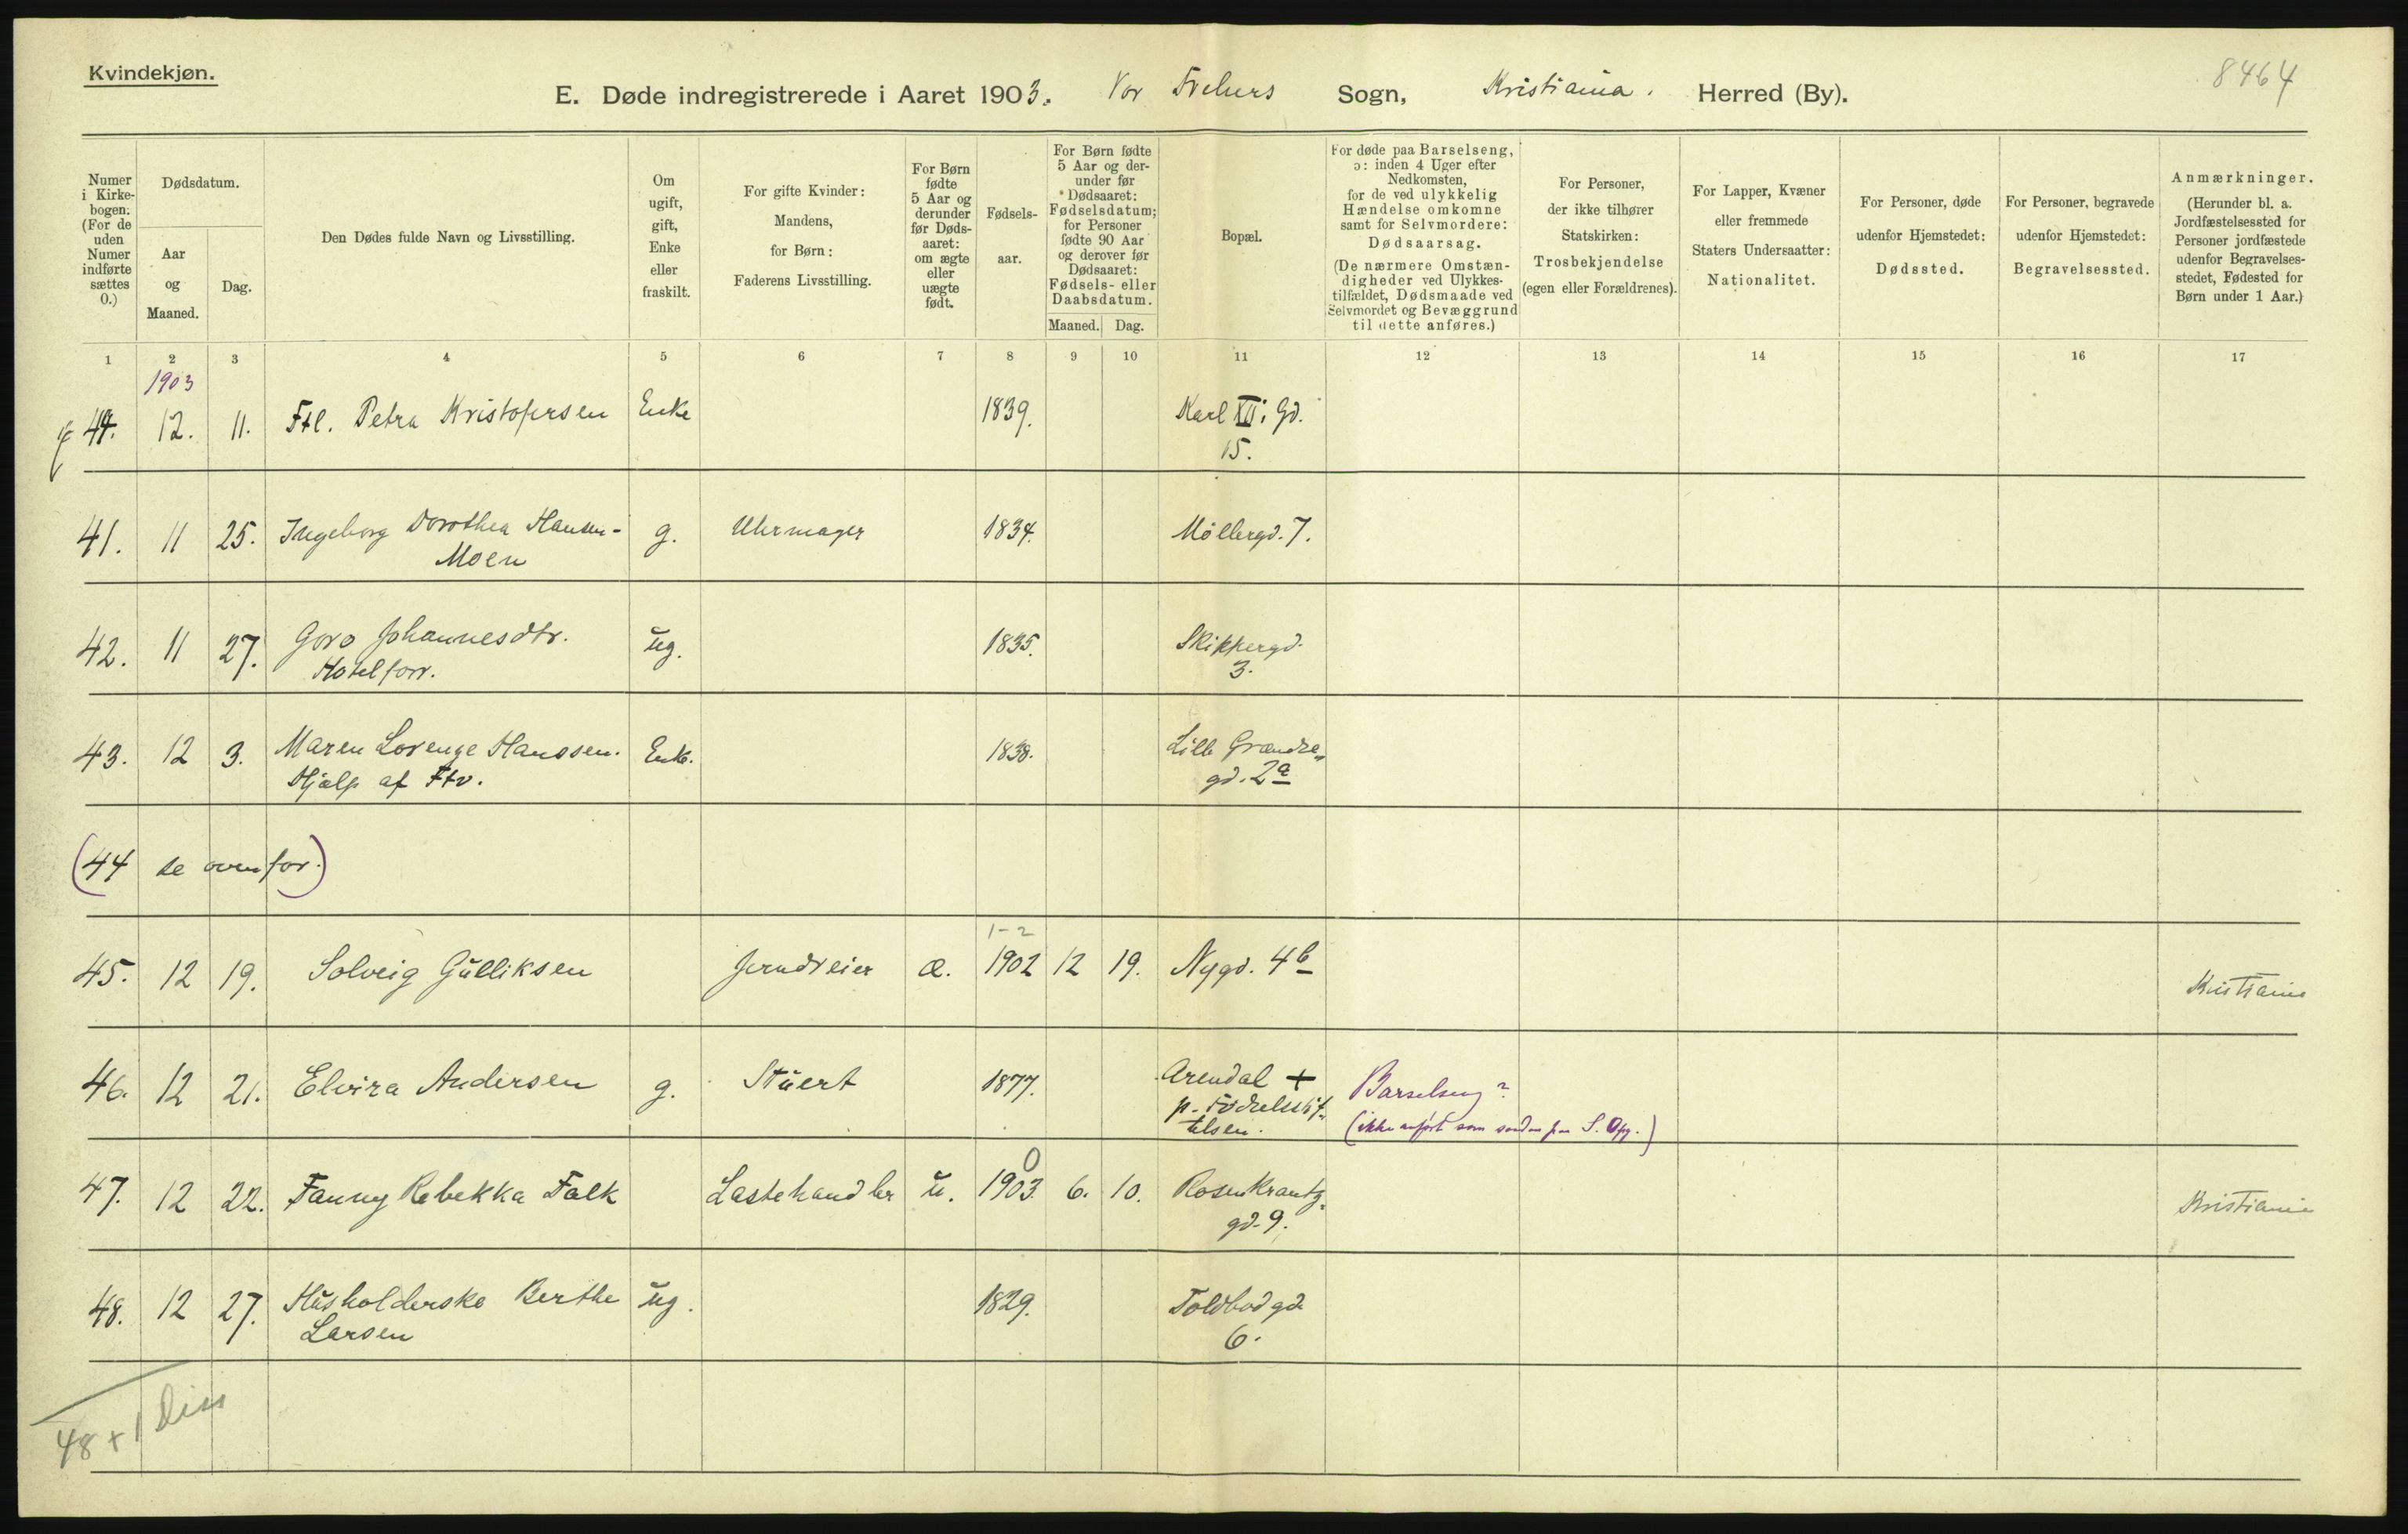 Kvindekjøn.
8464
E. Døde indregistrerede i Aaret 1903. Vor Frelsers Sogn, Kristiania. Herred (By).
Numer i Kirkebogen. (For de uden Numer indførte sættes 0.)
Dødsdatum.
Aar og Maaned.
Dag.
Den Dødes fulde Navn og Livsstilling.
Om ugift, gift, Enke eller fraskilt.
For gifte Kvinder: Mandens, for Børn: Faderens Livsstilling.
For Børn fødte 5 Aar og derunder før Dødsaaret: om ægte eller uægte født.
Fødselsaar.
For Børn fødte 5 Aar og derunder før Dødsaaret: Fødselsdatum; for Personer fødte 90 Aar og derover før Dødsaaret: Fødsels- eller Daabsdatum.
Maaned. Dag.
Bopæl.
For døde paa Barselseng, ɔ: inden 4 Uger efter Nedkomsten, for de ved ulykkelig Hændelse omkomne samt for Selvmordere: Dødsaarsag. (De nærmere Omstændigheder ved Ulykkestilfældet, Dødsmaade ved Selvmordet og Bevæggrund til dette anføres.)
For Personer, der ikke tilhører Statskirken: Trosbekjendelse (egen eller Forældrenes).
For Lapper, Kvæner eller fremmede Staters Undersaatter: Nationalitet.
For Personer, døde udenfor Hjemstedet: Dødssted.
For Personer, begravede udenfor Hjemstedet: Begravelsessted.
Anmærkninger. (Herunder bl. a. Jordfæstelsessted for Personer jordfæstede udenfor Begravelsesstedet, Fødested for Børn under 1 Aar.)
1 2 3 4 5 6 7 8 9 10 11 12 13 14 15 16 17
1903
44. 12. 11. Ftl. Petra Kristofersen Enke 1839. Karl XII: Gd.
15.
41. 11 25. Ingeborg Dorothea Hansen- g. Uhrmager 1834. Møllergd. 7.
Moen
42. 11 27. Goro Johannesdtr. ug. 1835. Skippergd.
Hotelforr. 3.
43. 12 3. Maren Lorenze Hanssen. Enke. 1838. Lille Grændse-
Hjælp af Ftv. gd. 2a
(44 se ovenfor.)
1-2
45. 12 19. Solveig Gulliksen Jerndreier æ. 1902 12 19. Nygd. 4b Kristiania
46. 12 21. Elvira Andersen g. Stuert 1877. Arendal + Barselseng?
p. Fødselsstif-
telsen. (ikke anført som saadan paa S. Opg.)
0
47. 12 22. Fanny Rebekka Falk Lastehandler u. 1903. 6. 10. Rosenkrantz- Kristiania
gd. 9.
48. 12 27. Husholderske Berthe ug. 1829. Toldbodgd.
Larsen 6.
48 + 1 Diss